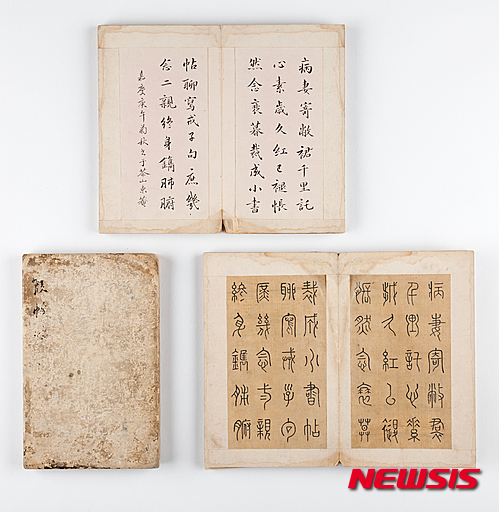 病妻寄敝裙千里託
心素歲久紅已褪悵
然念衰暮裁成小書
帖聊寫戒子句庶幾
念二親終身鐫肺腑
嘉慶庚午菊秋書于茶山東菴
病妻寄敝裙
千里託心素
歲久紅已褪
悵然念衰暮
裁成小書帖
聊寫戒子句
庶幾念二親
終身鐫肺腑
NEWSIS